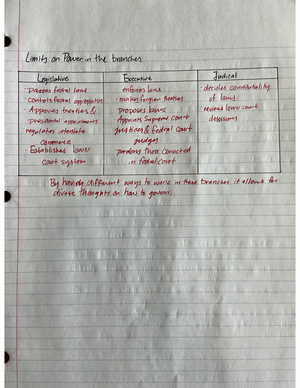 Limits on Power in the branches
Legislative
· Passes federal laws
· Controls federal appropriations
· Approves treaties &
presidential appointments
regulates interstate
commerce
Establishes lower
court system
Executive
enforces laws
· makes foreign treaties
Proposes laws
Appoints Supreme court
justices & federal court
judges
· pardons those convicted
in federal court
Judicial
· decides constitutionality
of laws
· reviews lower court
decisions
By having different ways to work in these branches it allows for
diverse thoughts on how to govern.